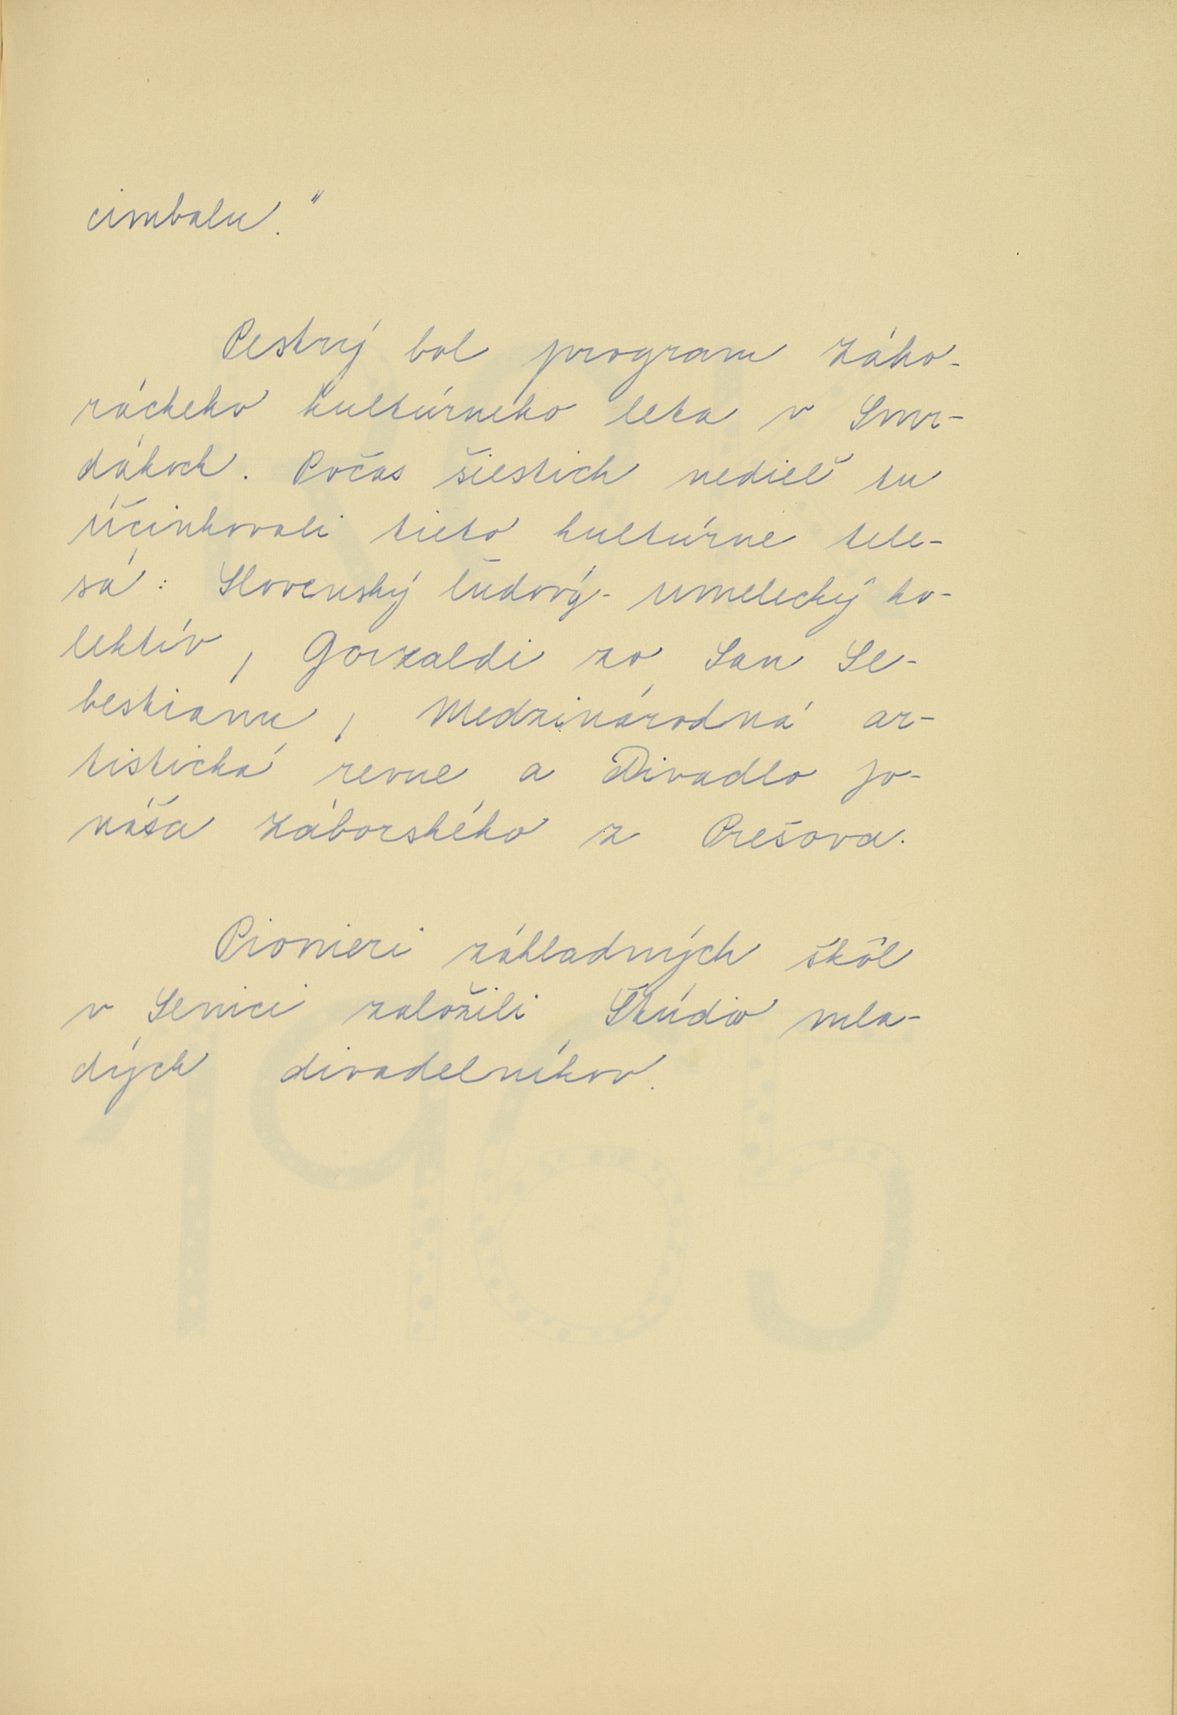 cimbalu."
Pestrý bol program Záho-
ráckeho kultúrneho leta v Smr-
dákoch. Počas šiestich nedieľ tu
účinkovali tieto kultúrne tele-
sá: Slovenský ľudový umelecký ko-
lektív, Gorzaldi zo San Se-
bestianu, Medzinárodná ar-
tistická revue a Divadlo Jo-
náša Záborského z Prešova.
Pionieri základných škôl
v Senici založili Štúdio mla-
dých divadelníkov.
1965